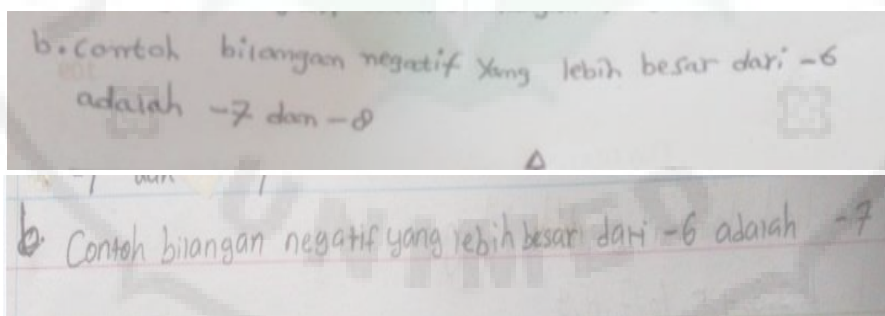 b. contoh bilangan negatif Yang lebih besar dari -6
adalah -7 dan -8
b. Contoh bilangan negatif yang lebih besar dari -6 adalah -7